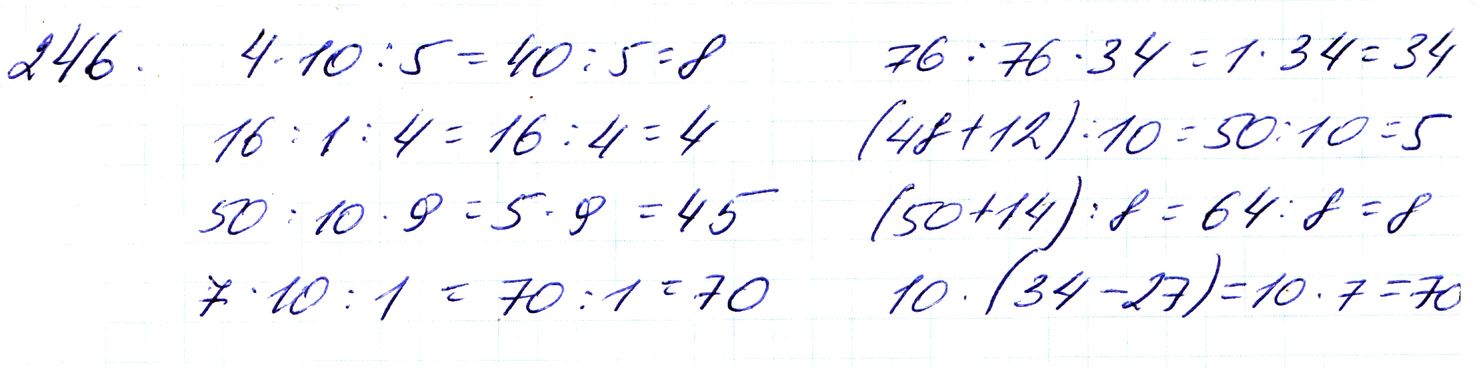 246. 4·10:5=40:5=8 76:76·34=1·34=34
16:1:4=16:4=4 (48+12):10=50:10=5
50:10·9=5·9=45 (50+14):8=64:8=8
7·10:1=70:1=70 10·(34-27)=10·7=70